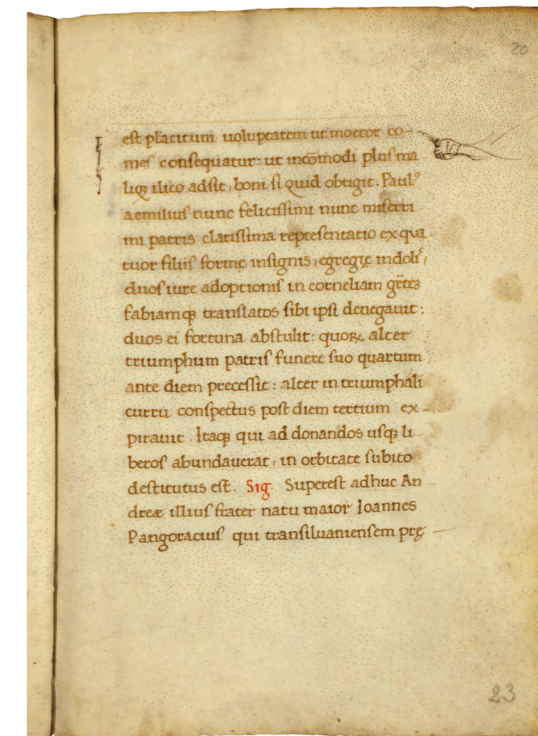 20
est placitum uoluptatem ut moeror co-
mes consequatur: ut incōmodi plus ma-
liqꝫ ilico adsit, boni si quid obtigit. Paulꝰ
aemilius nunc felicissimi nunc miserri
mi patris clarissima representatio ex qua
tuor filiis formę insignis, egregię indolis,
duos iure adoptionis in corneliam gētēs
fabiamqꝫ translatos sibi ipsi denegauit:
duos ei fortuna abstulit: quoꝝ alter
triumphum patris funere suo quartum
ante diem precessit: alter in triumphali
curru conspectus post diem tertium ex-
pirauit. Itaqꝫ qui ad donandos usqꝫ li-
beros abundauerat, in orbitate subito
destitutus est. Sig. Superest adhuc An
dreæ illius frater natu maior Ioannes
Pangoracius qui transiluaniensem prę-
23